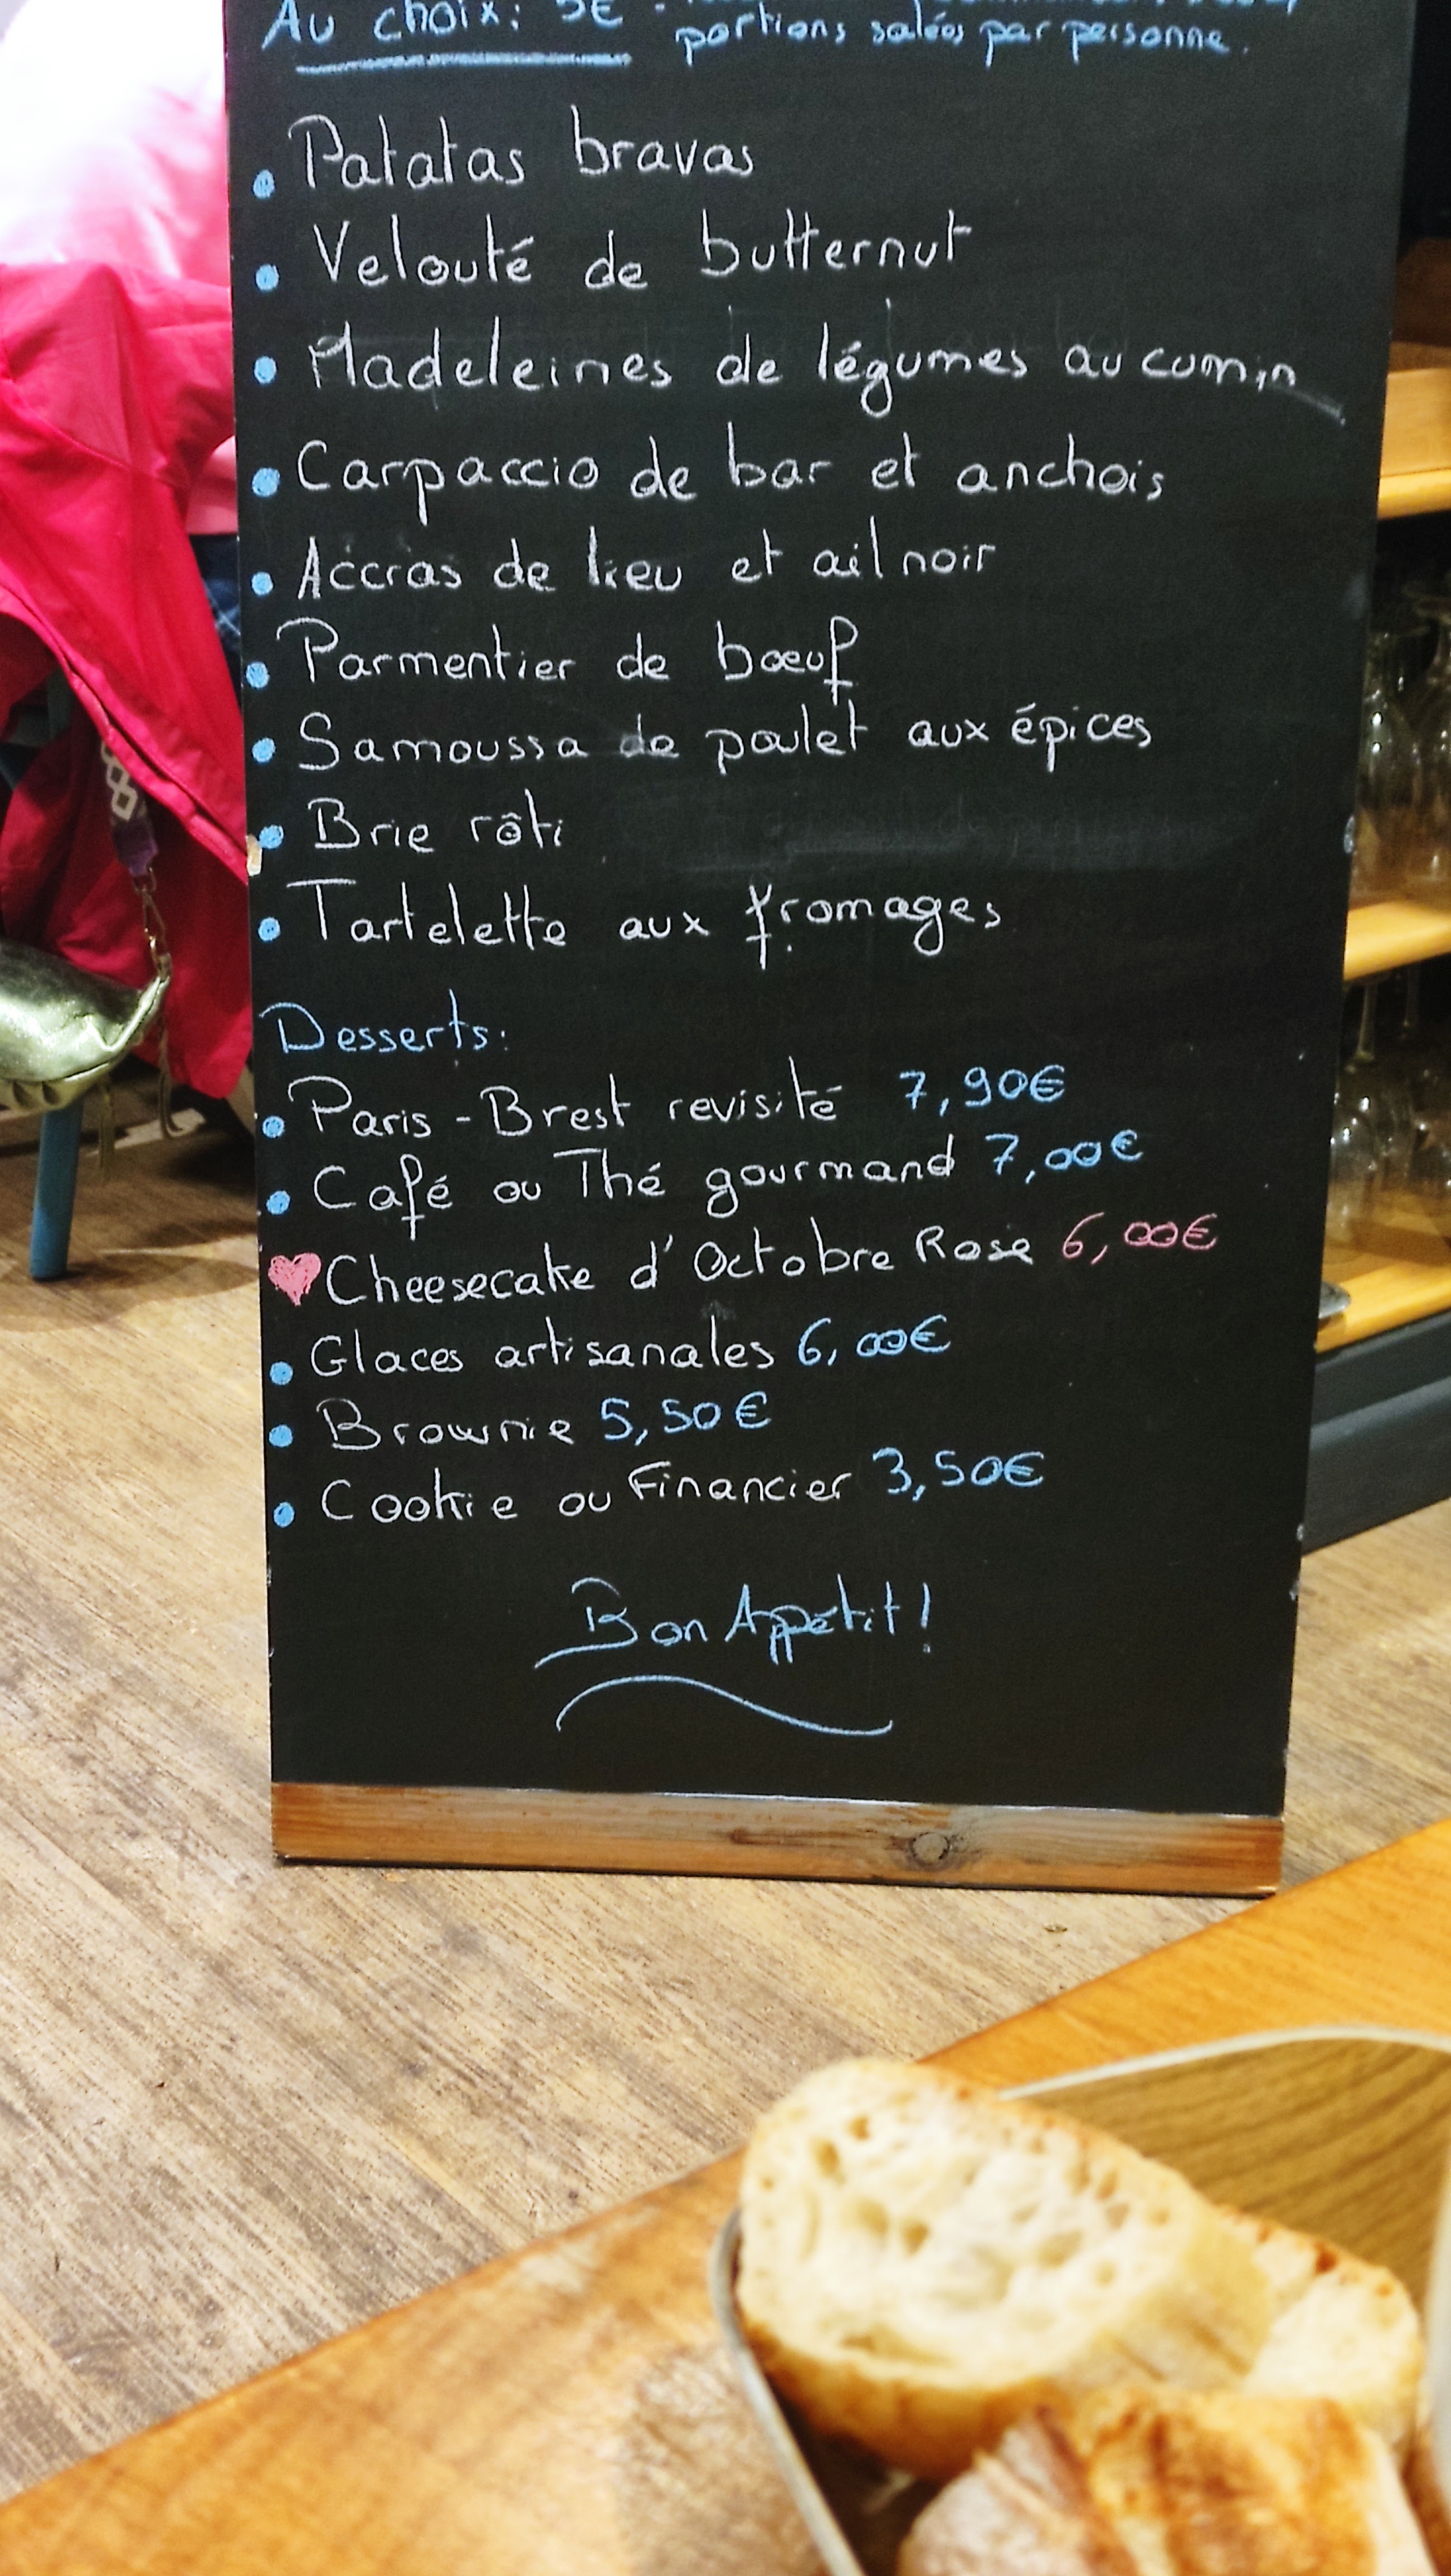 Au choix: 5€ -
portions salées par personne.
• Patatas bravas
• Velouté de butternut
• Madeleines de légumes au cumin
• Carpaccio de bar et anchois
• Accras de lieu et ail noir
• Parmentier de bœuf
• Samoussa de poulet aux épices
• Brie rôti
• Tartelette aux fromages
Desserts:
• Paris-Brest revisité 7,90€
• Café ou Thé gourmand 7,00€
♥ Cheesecake d'Octobre Rose 6,00€
• Glaces artisanales 6,00€
• Brownie 5,50€
• Cookie ou Financier 3,50€
Bon Appétit!